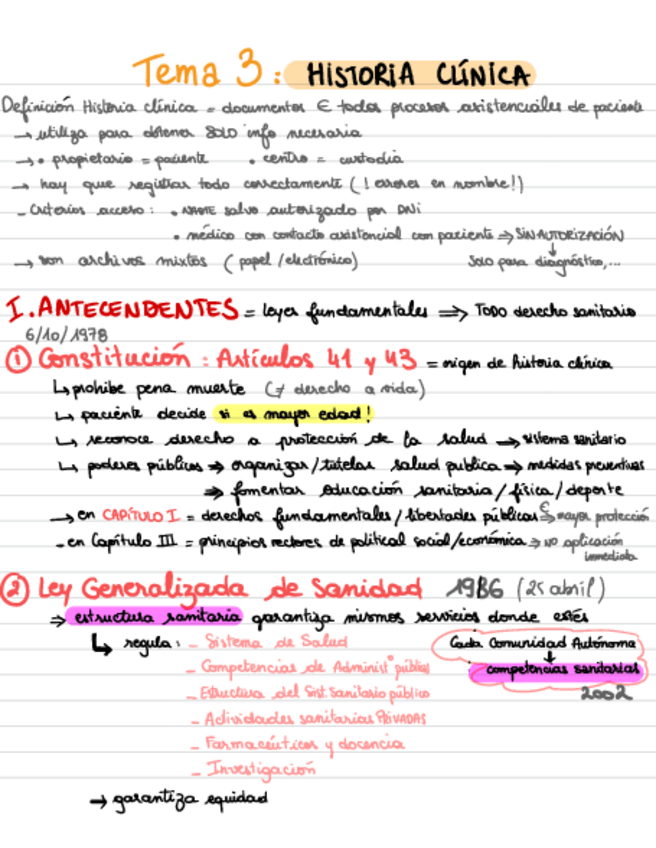 Tema 3: HISTORIA CLÍNICA
Definición Historia clínica = documentos ∈ todos procesos asistenciales de paciente
→ utiliza para obtener SOLO info necesaria
→ • propietario = paciente • centro = custodia
→ hay que registrar todo correctamente (! errores en nombre!)
- Criterios acceso: • NADIE salvo autorizado por DNi
• médico con contacto asistencial con paciente ⇒ SIN AUTORIZACIÓN
↓
→ son archivos mixtos (papel /electrónico) Solo para diagnóstico,...
I. ANTECENDENTES = leyes fundamentales ⇒ TODO derecho sanitario
6/10/1978
① Constitución: Artículos 41 y 43 = origen de historia clínica
↳ prohibe pena muerte (≠ derecho a vida)
↳ paciente decide si es mayor edad!
↳ reconoce derecho a protección de la salud → sistema sanitario
↳ poderes públicos ⇒ organizar/tutelar salud publica → medidas preventivas
⇒ fomentar educación sanitaria/física/deporte
→ en CAPÍTULO I = derechos fundamentales/libertades públicas ⇒ mayor protección
- en Capítulo III = principios rectores de political social/económica → no aplicación
inmediata
② Ley Generalizada de Sanidad 1986 (25 abril)
⇒ estructura sanitaria garantiza mismos servicios donde estés
↳ regula: - Sistema de Salud
Cada Comunidad Autónoma
↓
- Competencias de Administ° públicas
competencias sanitarias
- Estructura del Sist. Sanitario público
2002
- Actividades sanitarias PRIVADAS
- Farmacéuticos y docencia
- Investigación
→ garantiza equidad